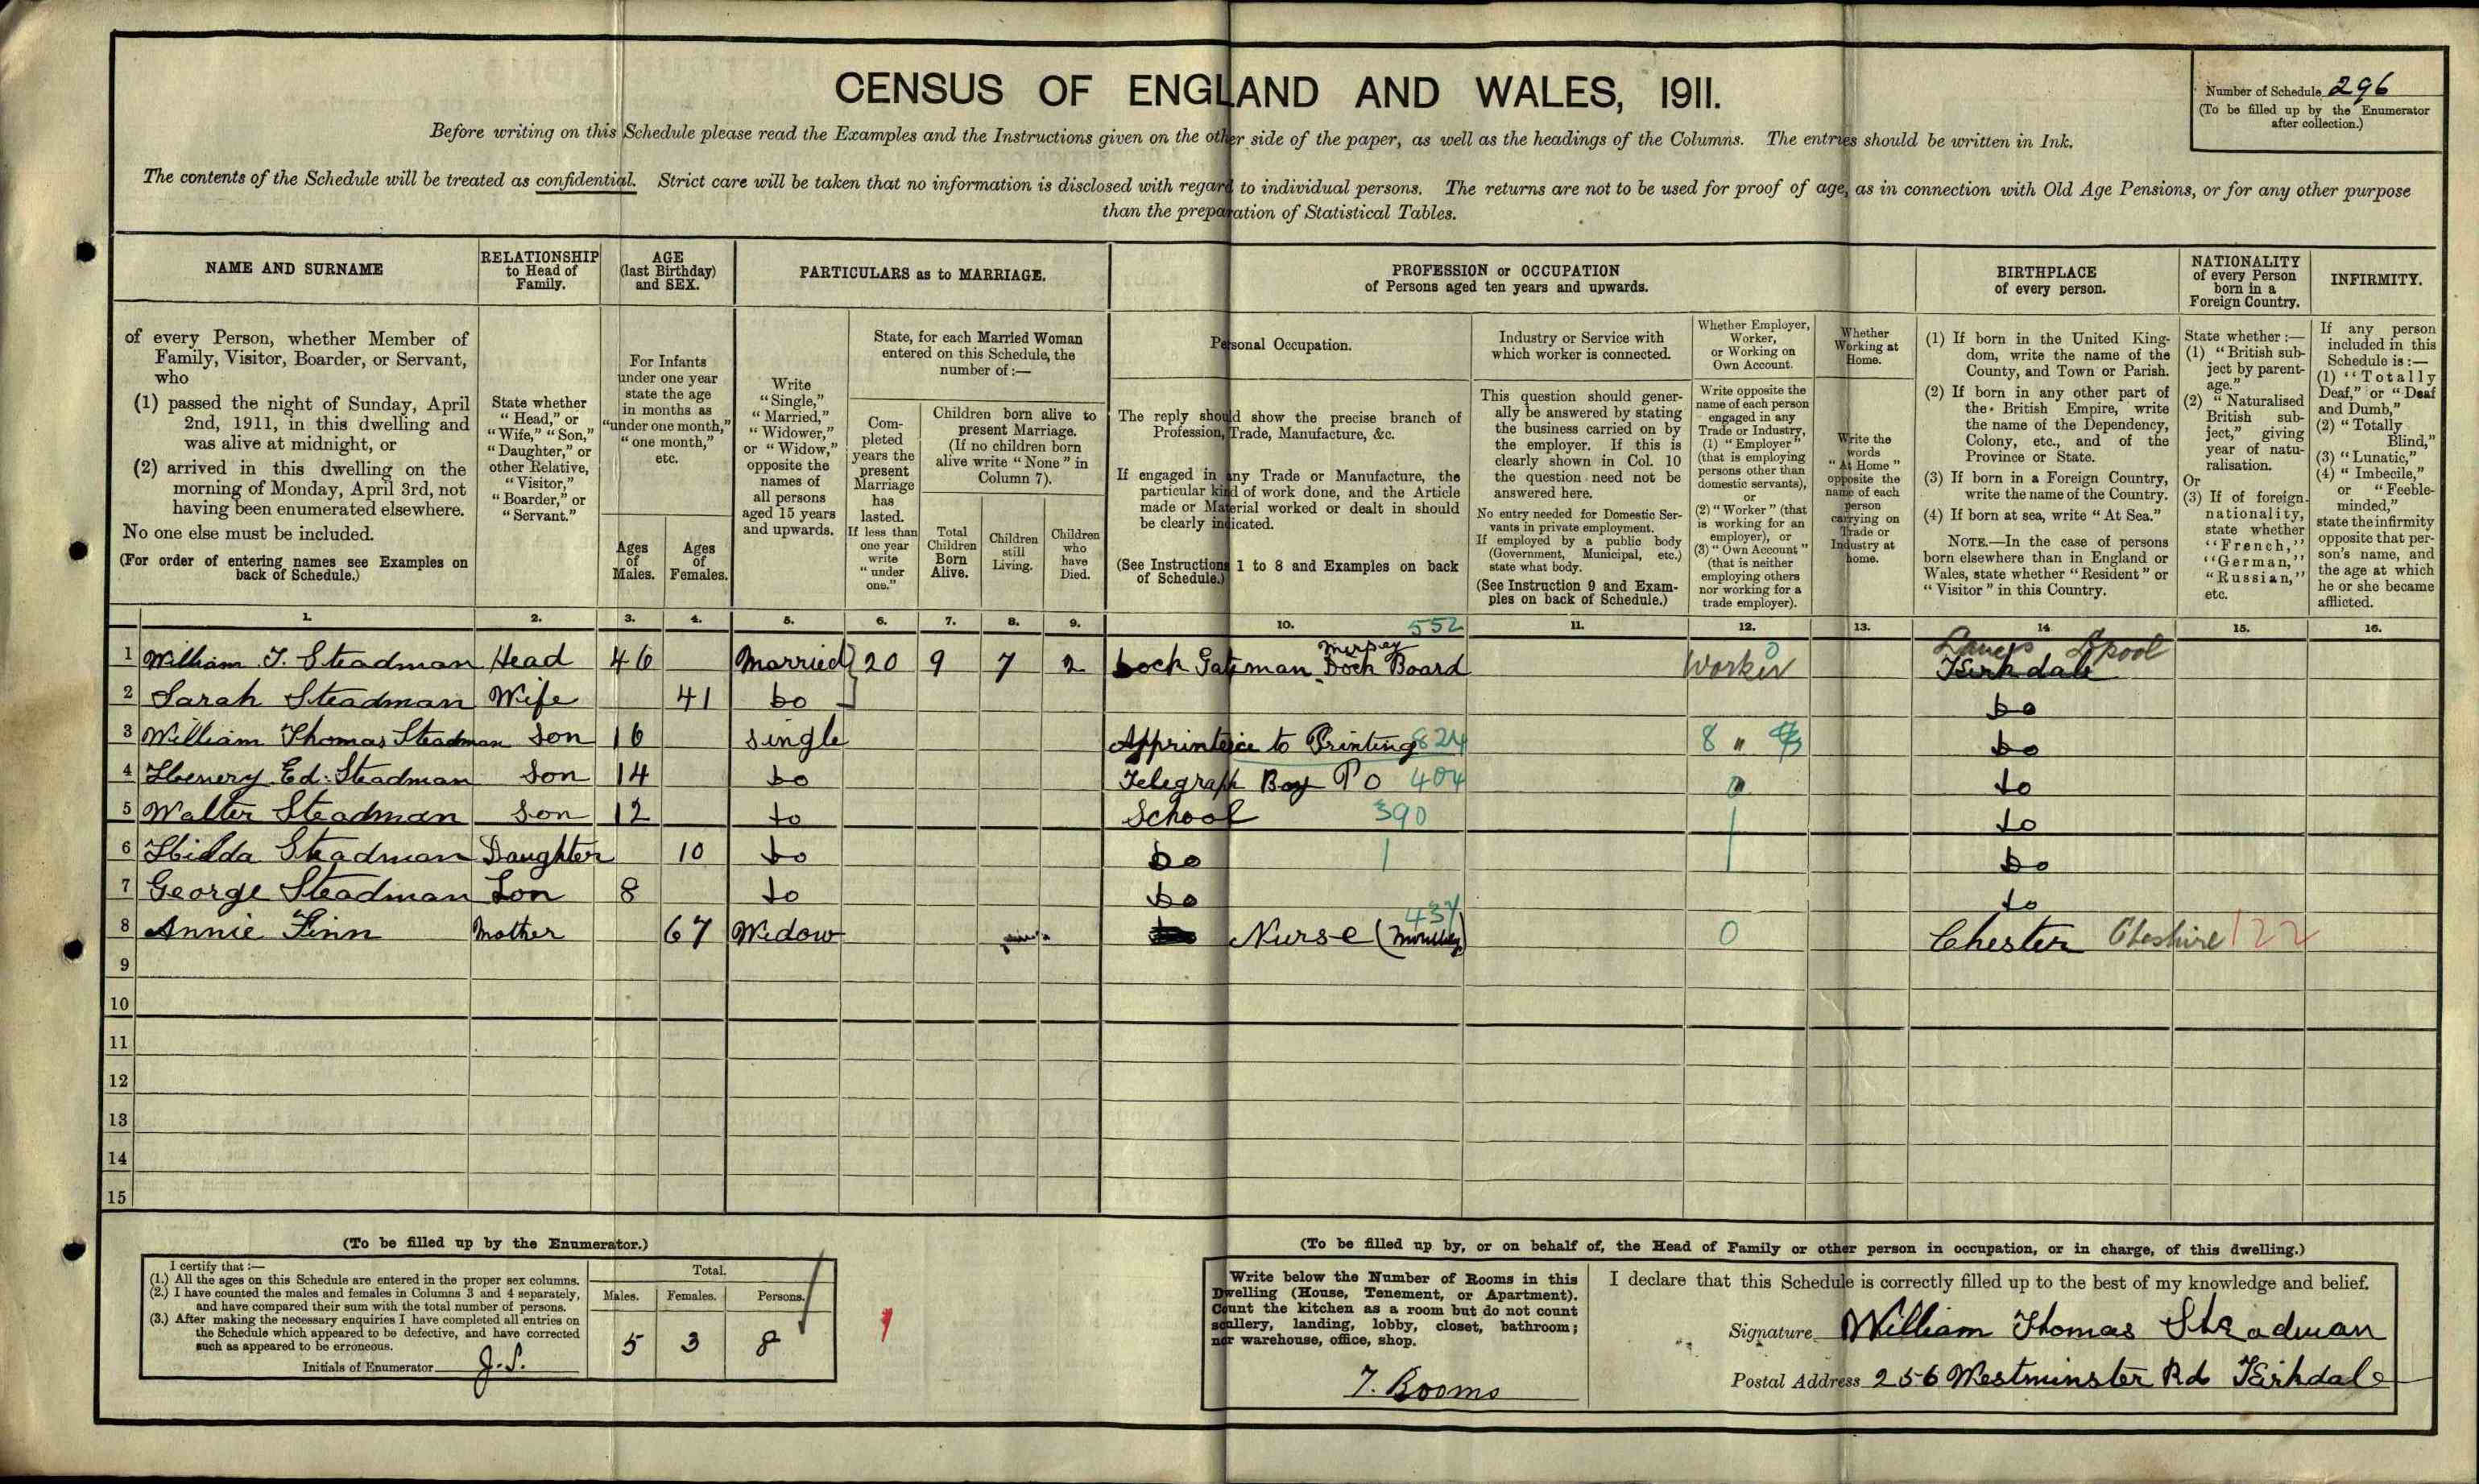 CENSUS OF ENGLAND AND WALES, 1911.
Number of Schedule 296
(To be filled up by the Enumerator
after collection.)
Before writing on this Schedule please read the Examples and the Instructions given on the other side of the paper, as well as the headings of the Columns. The entries should be written in Ink.
The contents of the Schedule will be treated as confidential. Strict care will be taken that no information is disclosed with regard to individual persons. The returns are not to be used for proof of age, as in connection with Old Age Pensions, or for any other purpose
than the preparation of Statistical Tables.
NAME AND SURNAME
of every Person, whether Member of
Family, Visitor, Boarder, or Servant,
who
(1) passed the night of Sunday, April
2nd, 1911, in this dwelling and
was alive at midnight, or
(2) arrived in this dwelling on the
morning of Monday, April 3rd, not
having been enumerated elsewhere.
No one else must be included.
(For order of entering names see Examples on
back of Schedule.)
RELATIONSHIP
to Head of
Family.
State whether
"Head," or
"Wife," "Son,"
"Daughter," or
other Relative,
"Visitor,"
"Boarder," or
"Servant."
AGE
(last Birthday)
and SEX.
For Infants
under one year
state the age
in months as
"under one month,"
"one month,"
etc.
Ages
of
Males.
Ages
of
Females.
PARTICULARS as to MARRIAGE.
Write
"Single,"
"Married,"
"Widower,"
or "Widow,"
opposite the
names of
all persons
aged 15 years
and upwards.
State, for each Married Woman
entered on this Schedule, the
number of:—
Com-
pleted
years the
present
Marriage
has
lasted.
If less than
one year
write
"under
one."
Children born alive to
present Marriage.
(If no children born
alive write "None" in
Column 7).
Total
Children
Born
Alive.
Children
still
Living.
Children
who
have
Died.
PROFESSION or OCCUPATION
of Persons aged ten years and upwards.
Personal Occupation.
The reply should show the precise branch of
Profession, Trade, Manufacture, &c.
If engaged in any Trade or Manufacture, the
particular kind of work done, and the Article
made or Material worked or dealt in should
be clearly indicated.
(See Instructions 1 to 8 and Examples on back
of Schedule.)
Industry or Service with
which worker is connected.
This question should gener-
ally be answered by stating
the business carried on by
the employer. If this is
clearly shown in Col. 10
the question need not be
answered here.
No entry needed for Domestic Ser-
vants in private employment.
If employed by a public body
(Government, Municipal, etc.)
state what body.
(See Instruction 9 and Exam-
ples on back of Schedule.)
Whether Employer,
Worker,
or Working on
Own Account.
Write opposite the
name of each person
engaged in any
Trade or Industry,
(1) "Employer"
(that is employing
persons other than
domestic servants),
or
(2) "Worker" (that
is working for an
employer), or
(3) "Own Account"
(that is neither
employing others
nor working for a
trade employer).
Whether
Working at
Home.
Write the
words
"At Home"
opposite the
name of each
person
carrying on
Trade or
Industry at
home.
BIRTHPLACE
of every person.
(1) If born in the United King-
dom, write the name of the
County, and Town or Parish.
(2) If born in any other part of
the British Empire, write
the name of the Dependency,
Colony, etc., and of the
Province or State.
(3) If born in a Foreign Country,
write the name of the Country.
(4) If born at sea, write "At Sea."
NOTE.—In the case of persons
born elsewhere than in England or
Wales, state whether "Resident" or
"Visitor" in this Country.
NATIONALITY
of every Person
born in a
Foreign Country.
State whether:—
(1) "British sub-
ject by parent-
age."
(2) "Naturalised
British sub-
ject," giving
year of natu-
ralisation.
Or
(3) If of foreign
nationality,
state whether
"French,"
"German,"
"Russian,"
etc.
INFIRMITY.
If any person
included in this
Schedule is:—
(1) "Totally
Deaf," or "Deaf
and Dumb,"
(2) "Totally
Blind,"
(3) "Lunatic,"
(4) "Imbecile,"
or "Feeble-
minded,"
state the infirmity
opposite that per-
son's name, and
the age at which
he or she became
afflicted.
1. 2. 3. 4. 5. 6. 7. 8. 9. 10. 552 11. 12. 13. 14 15. 16.
Mersey 0 Lancs Lpool
1 William T. Steadman Head 46 Married 20 9 7 2 Lock Gateman Dock Board Worker Kirkdale
2 Sarah Steadman Wife 41 Do Do
3 William Thomas Steadman Son 16 Single Apprinteice to Printing 824 8 " Do
4 Henery Ed. Steadman Son 14 Do Telegraph Boy PO 404 0 Do
5 Walter Steadman Son 12 Do School 390 Do
6 Hilda Steadman Daughter 10 Do Do Do
7 George Steadman Son 8 Do Do Do
8 Annie Finn Mother 67 Widow Nurse (Monthly) 437 0 Chester Cheshire 122
9
10
11
12
13
14
15
(To be filled up by the Enumerator.)
I certify that:—
(1.) All the ages on this Schedule are entered in the proper sex columns.
(2.) I have counted the males and females in Columns 3 and 4 separately,
and have compared their sum with the total number of persons.
(3.) After making the necessary enquiries I have completed all entries on
the Schedule which appeared to be defective, and have corrected
such as appeared to be erroneous.
Initials of Enumerator J.S.
Total.
Males. Females. Persons.
5 3 8
(To be filled up by, or on behalf of, the Head of Family or other person in occupation, or in charge, of this dwelling.)
Write below the Number of Rooms in this
Dwelling (House, Tenement, or Apartment).
Count the kitchen as a room but do not count
scullery, landing, lobby, closet, bathroom;
nor warehouse, office, shop.
7. Rooms
I declare that this Schedule is correctly filled up to the best of my knowledge and belief.
Signature William Thomas Steadman
Postal Address 256 Westminster Rd Kirkdale